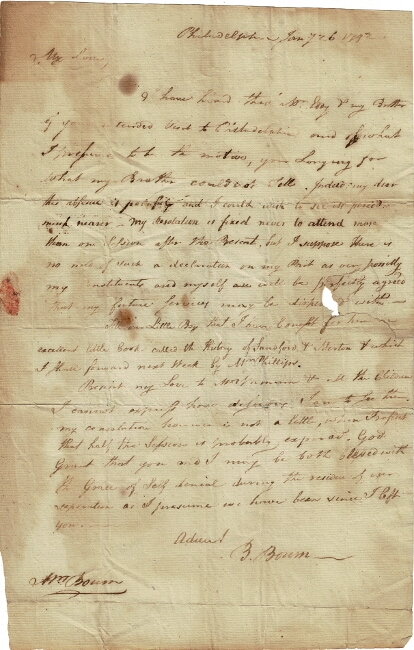 Philadelphia Jan 7 & 6 1792
My Love,
I have heard thro' Mr. & my Brother
of your intended visit to Philadelphia and of what
I presume to be the motives, your Longing for
what my Brother could not tell. Indeed my dear
this absence is painful and I could wish to see its period
much nearer - My Resolution is fixed never to attend more
than one Session after the Present, but I suppose there is
no need of such a declaration on my Part as very possibly
my Constituents and myself also will be perfectly agreed
that my future Services may be dispensed with -
Little Boy that I have bought for him
excellent little Book called the History of Sandford & Merton & which
I shall forward next Week by Mrs Phillips.
Present my Love to & all the Children
I cannot express how desirous I am to see them
my consolation however is not a little, when I reflect
that half the Session is probably expired. God
Grant that you and I may be both blessed with
the Grace of Self denial during the residue of our
separation as I presume we have been since I left
you -
Adieu!
B. Bourn
Mrs Bourn